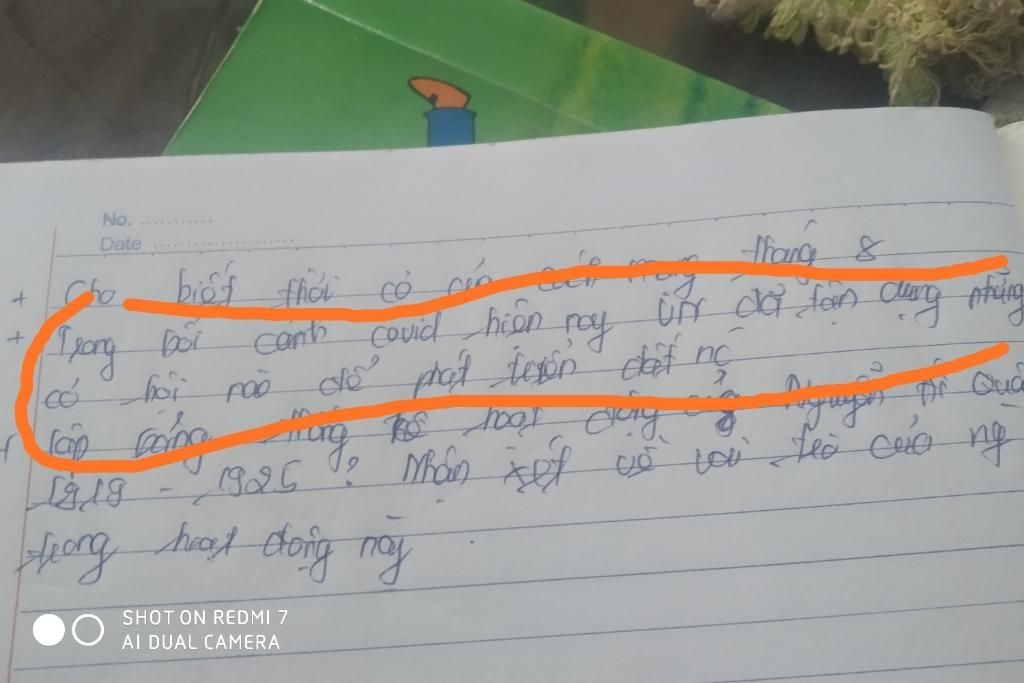 No. ...........
Date ........................
+ Cho biết thời cơ của cách mạng tháng 8
+ Trong bối cảnh covid hiện nay VN đã tận dụng những
cơ hội nào để phát triển đất nc
+ lập bảng thống kê hoạt động của Nguyễn Ái Quốc
1919 - 1925 ? Nhận xét về vai trò của ng
trong hoạt động này
SHOT ON REDMI 7
AI DUAL CAMERA